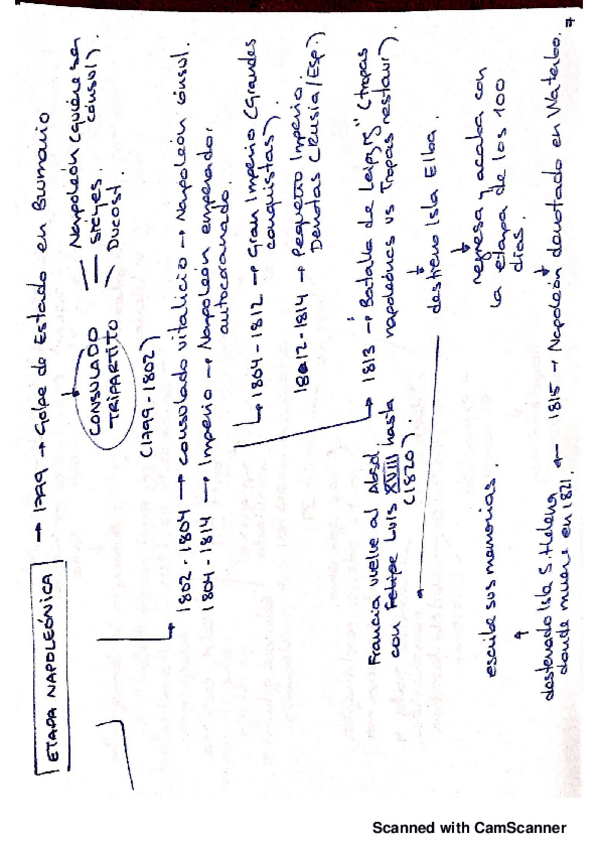 7
ETAPA NAPOLEÓNICA
→ 1799 → Golpe de Estado en Brumario
CONSULADO
TRIPARTITO
(1799-1802)
Napoleón (quiere ser
cónsul).
Sieyes.
Ducost.
1802-1804 → consulado vitalicio → Napoleón cónsul.
1804-1814 → Imperio → Napoleón emperador
autocoronado.
1804-1812 → Gran Imperio (Grandes
conquistas).
1812-1814 → Pequeño Imperio.
Derrotas (Rusia/Esp.)
→ 1813 → Batalla de Leipzig" (tropas
napoleónics vs Tropas restaur).
destierro Isla Elba.
Francia vuelve al Absol.
con Felipe Luis XVIII hasta
(1820).
regresa y acaba con
la etapa de los 100
días.
1815 → Napoleón derrotado en Waterloo.
desterrado Isla S. Helena ←
donde muere en 1821.
escribe sus memorias.
Scanned with CamScanner